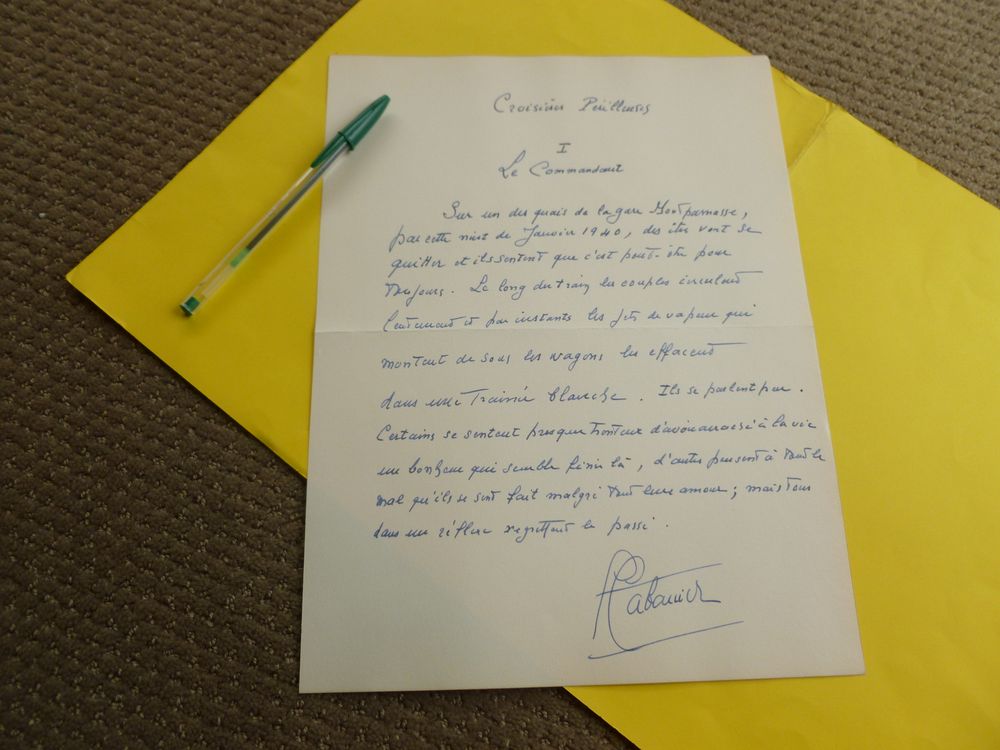 Croisières Périlleuses
I
Le Commandant
Sur un des quais de la gare Montparnasse,
par cette nuit de Janvier 1940, des êtres vont se
quitter et ils sentent que c'est peut-être pour
toujours. Le long du train les couples circulent
lentement et par instants les jets de vapeur qui
montent de sous les wagons les effacent
dans une trainée blanche. Ils se parlent peu.
Certains se sentent presque honteux d'avoir arraché à la vie
un bonheur qui semble finir là, d'autres pensent à tout le
mal qu'ils se sont fait malgré tout leur amour ; mais tous
dans un réflexe regrettent le passé.
Cabanier